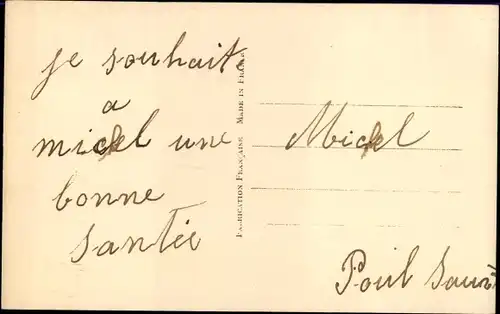 je souhaite
a
michel une
bonne
santée
FABRICATION FRANÇAISE MADE IN FRANCE
Michel
Poul